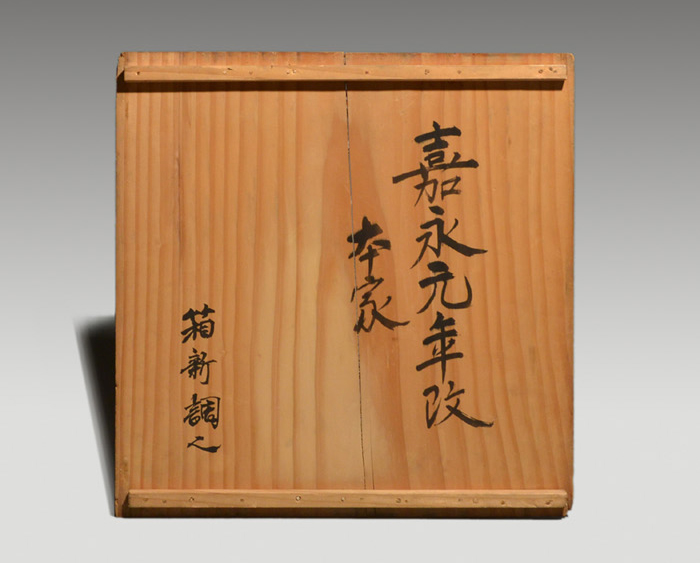 嘉永元年改
本家
箱新調之